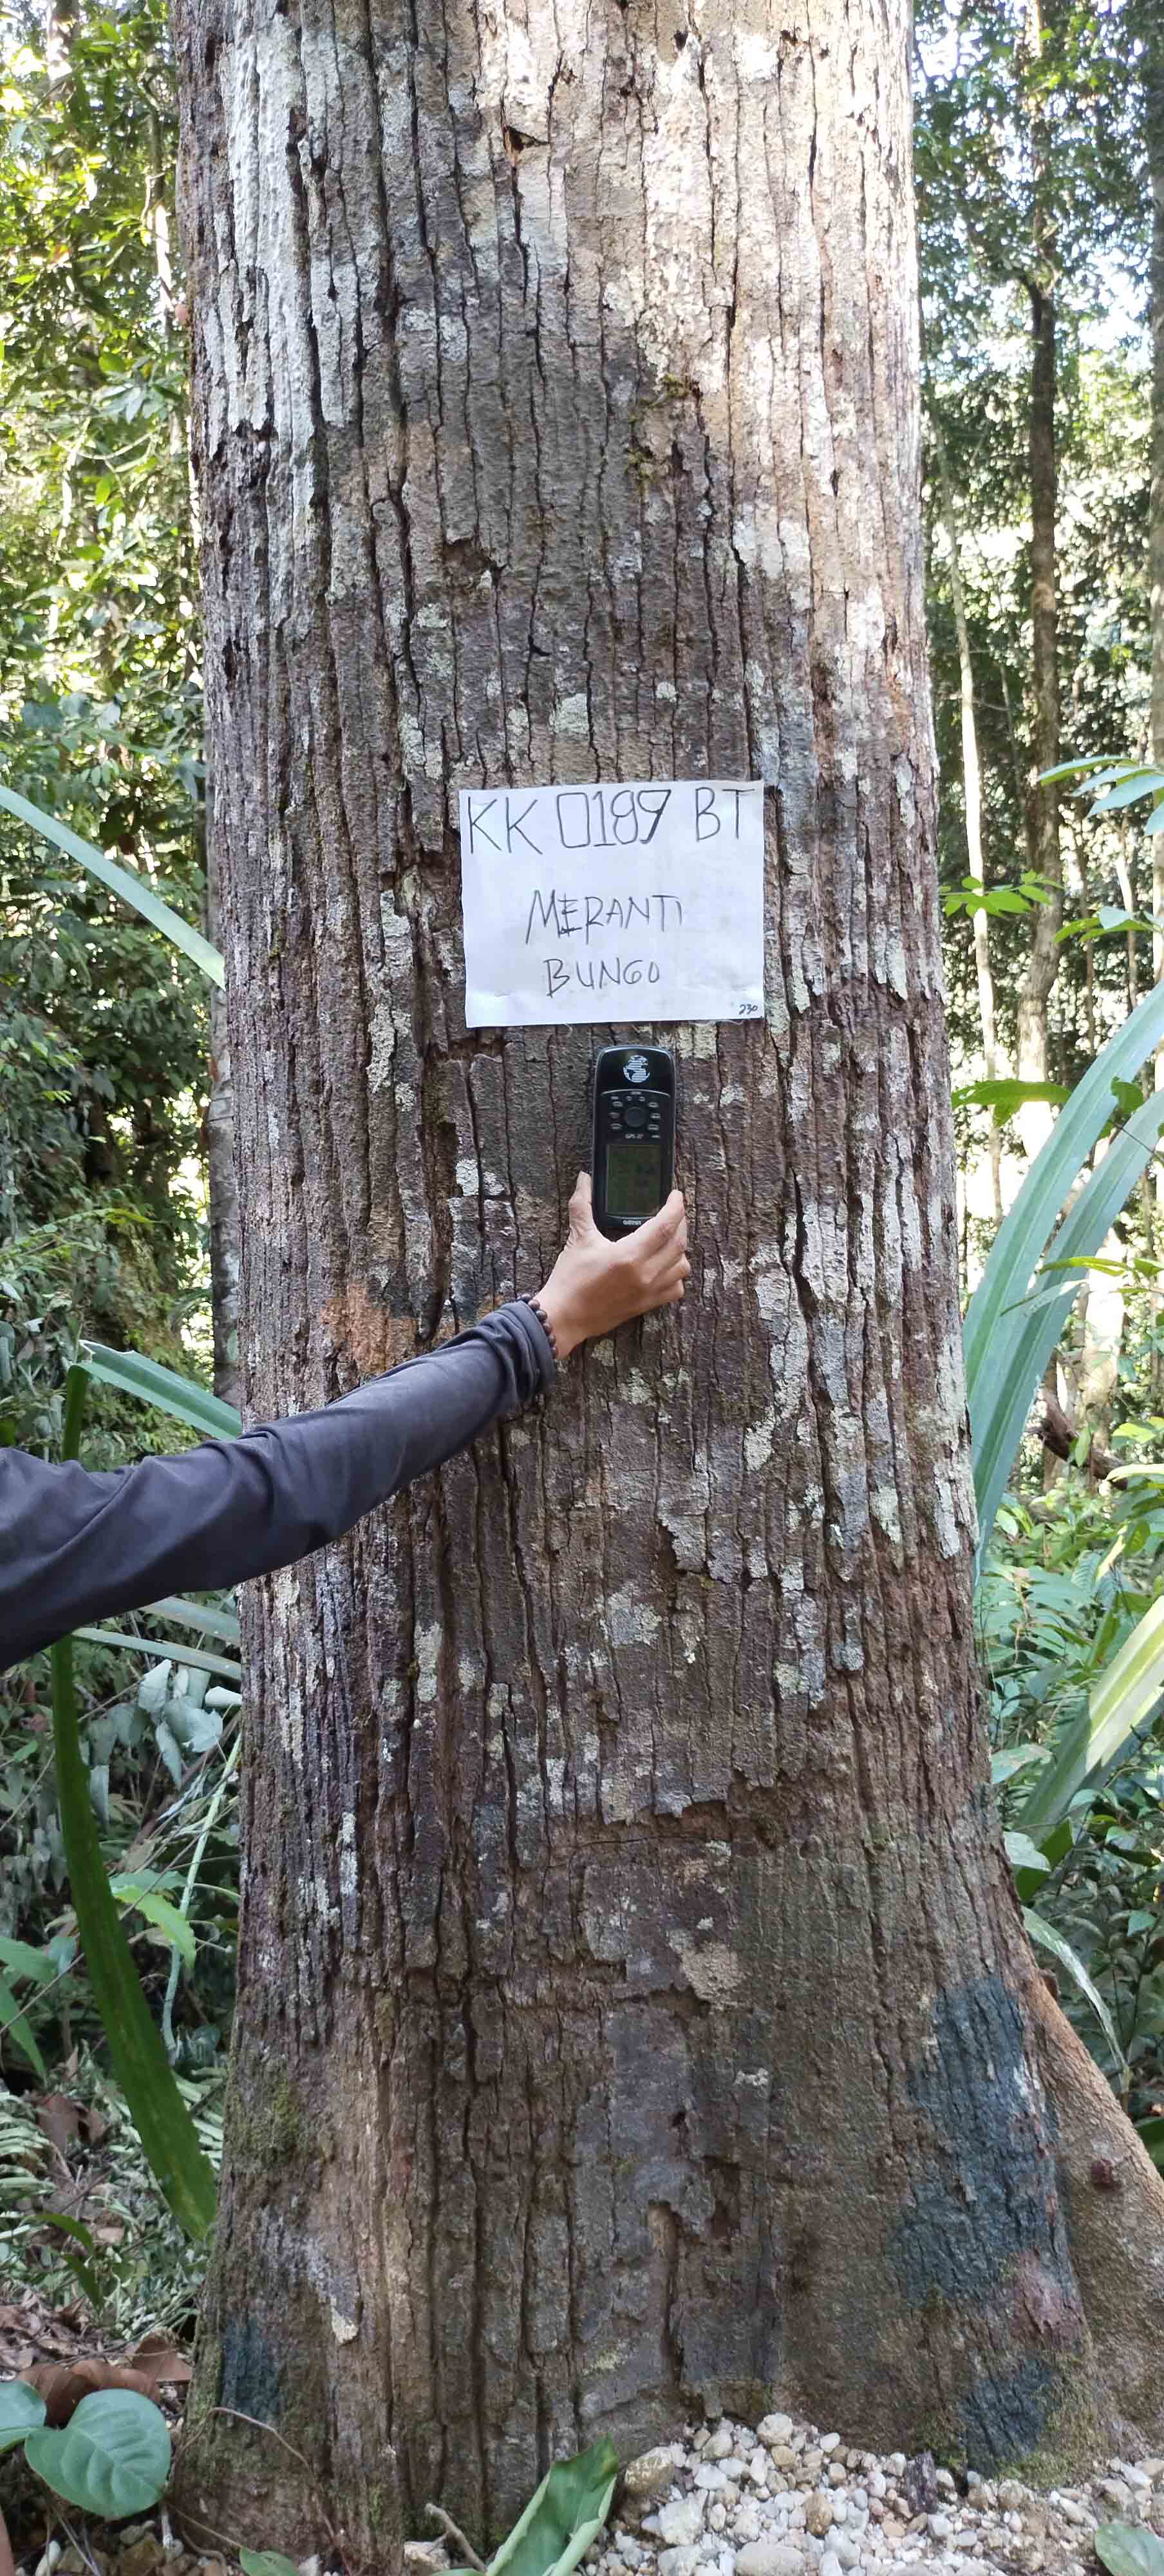 KK 0189 BT
MERANTI
BUNGO
230
GPS 72
GARMIN